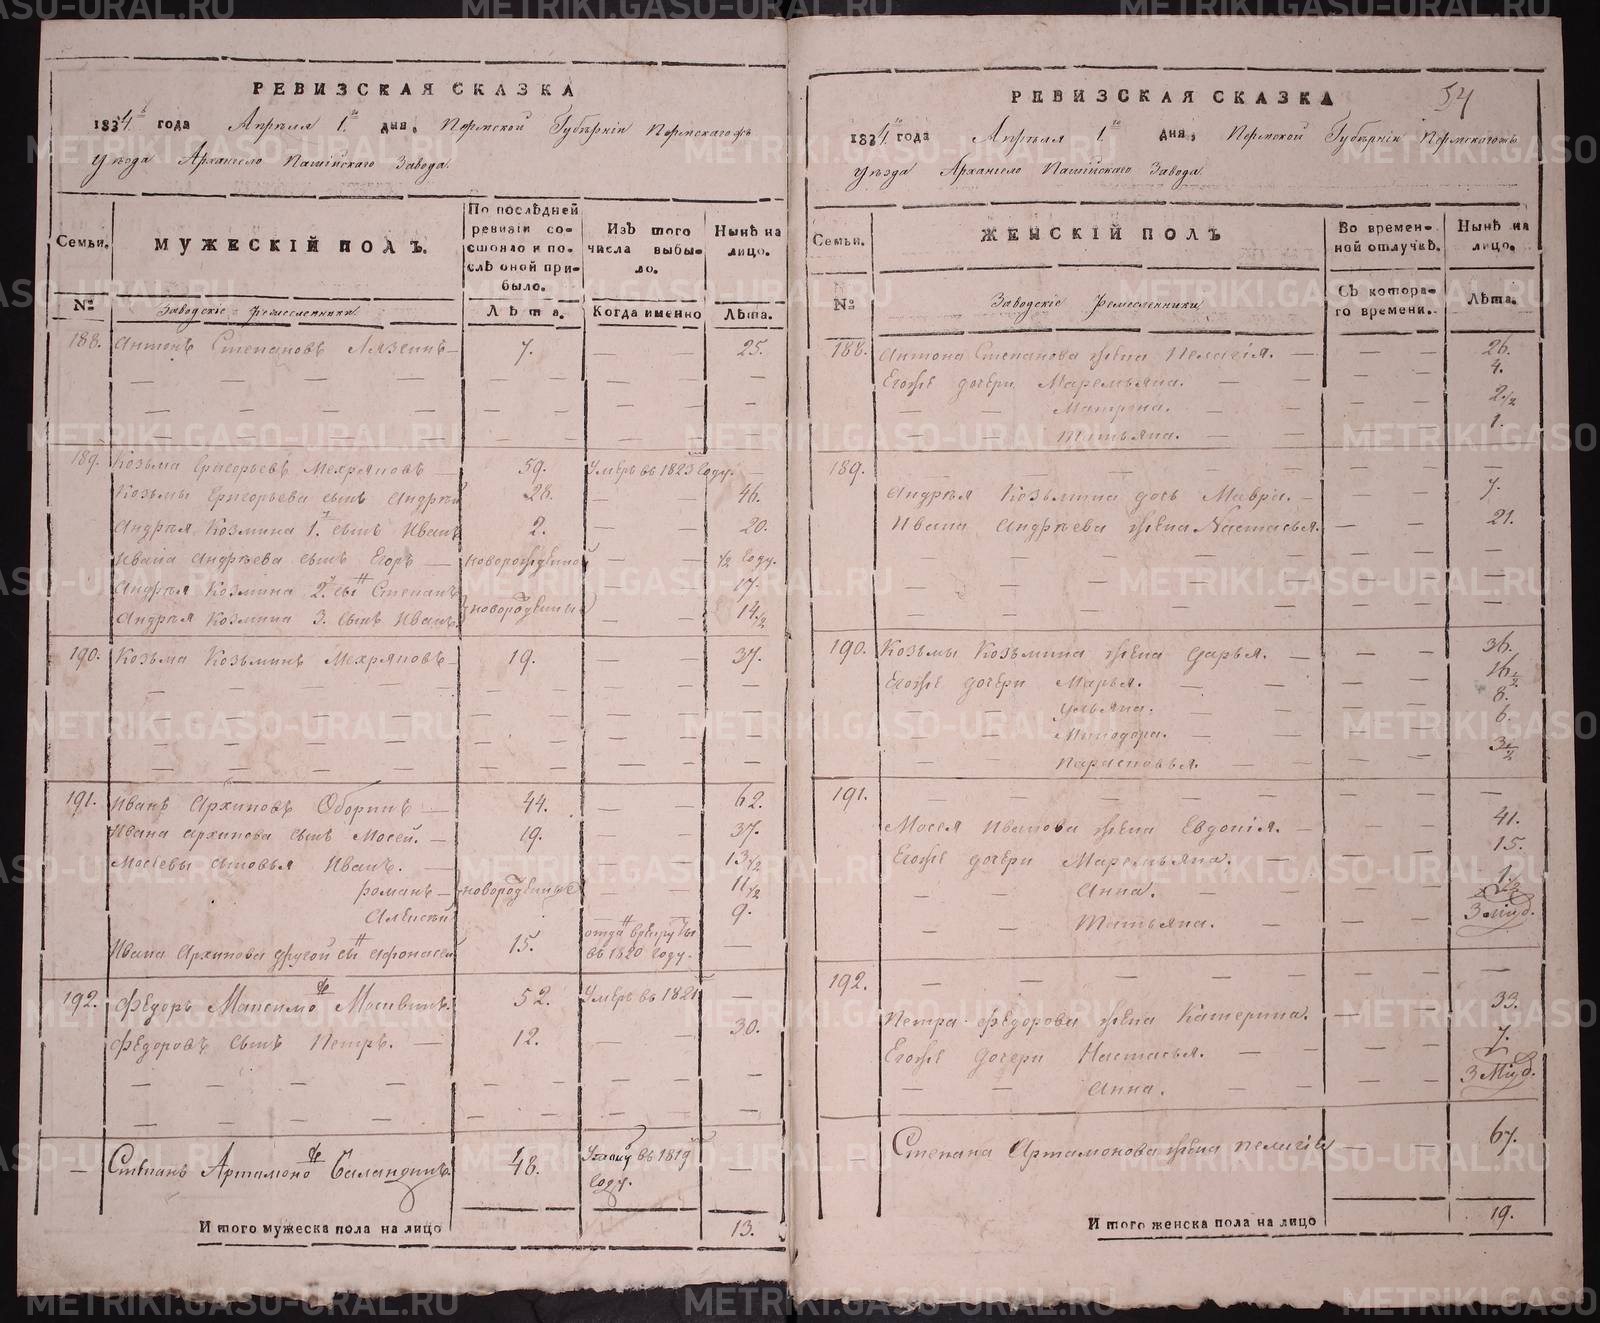 РЕВИЗСКАЯ СКАЗКА
1834 года Апрѣля 1го дня, Пермской Губѣрніи Пермскаго
Уѣзда Архангело Пашійскаго Завода
Семьи.
МУЖЕСКІЙ ПОЛЪ.
По послѣдней ревизіи состояло и послѣ оной прибыло.
Изъ того числа выбыло.
Нынѣ на лицо.
№
Заводскіе Ремесленники
Лѣта.
Когда именно
Лѣта.
188. Антонъ Степановъ — 7. — — 25.
189. Козьма Григорьевъ Мехряковъ — 59. Умеръ въ 1823 году. —
Козьмы Григорьева сынъ Андрей 28. — — 46.
Андрѣя Козмина 1й сынъ Иванъ 2. — — 20.
Ивана Андрѣева сынъ Егоръ — новорожденной — — 1/2 году.
Андрѣя Козмина 2й сынъ Степанъ 17.
Андрѣя Козмина 3. сынъ Иванъ. новорожденные — — 14 1/2
190. Козьма Козьминъ Мехряковъ — 19. — — 37.
191. Иванъ Архиповъ Оборинъ — 44. — — 62.
Ивана Архипова сынъ Мосей. — 19. — — 37.
Мосѣевы сыновья Иванъ. — — — 13 1/2
Романъ — новорожденные — — 11 1/2
Алексѣй 9.
Ивана Архипова другой сынъ Афонасей 15. отданъ в рекруты въ 1820 году. —
192. Федоръ Максимовъ 52. Умеръ въ 1821 —
Федоровъ сынъ Петръ. — 12. — — 30.
— Степанъ Артамоновъ Баландинъ. 48. въ 1819 году. —
Итого мужеска пола на лицо 13.
54
РЕВИЗСКАЯ СКАЗКА
1834 года Апрѣля 1го дня, Пермской Губѣрніи Пермскаго
Уѣзда Архангело Пашійскаго Завода
Семьи.
ЖЕНСКІЙ ПОЛЪ
Во временной отлучкѣ.
Нынѣ на лицо.
№
Заводскіе Ремесленники
Съ котораго времени.
Лѣта.
188. Антона Степанова жена Пелагія. — — — 26.
Егожъ дочери Маремьяна. — — — 4.
Матрена. — — 2 1/2
Татьяна. — — 1.
189.
Андрѣя Козьмина дочь Мавра. — — — 7.
Ивана Андрѣева жена Настасья. — — 21.
190. Козьмы Козьмина жена Дарья. — — — 36.
Егожъ дочери Марья. — — — 16 1/2
Ульяна. — — 8.
Минодора. — — 6.
Парасковья. — — 3 1/2
191.
Мосея Иванова жена Евдокія. — — — 41.
Егожъ дочери Маремьяна. — — — 15.
Анна. — — 1 1/2
Татьяна. — — 3 мѣс.
192.
Петра Федорова жена Катерина. — — 33.
Егожъ дочери Настасья. — — — 7.
Анна. 3 мѣс.
— Степана Артамонова жена Пелагія — — 67.
Итого женска пола на лицо 19.
METRIKI.GASO-URAL.RU